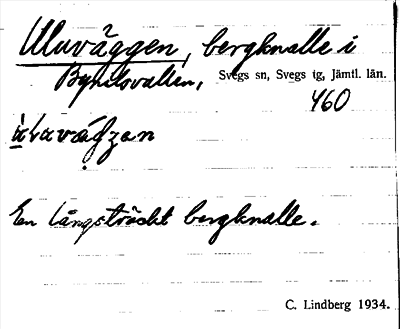 Uluväggen, bergknalle i
Svegs sn, Svegs tg, Jämtl. län.
460
En långsträckt bergknalle.
C. Lindberg 1934.